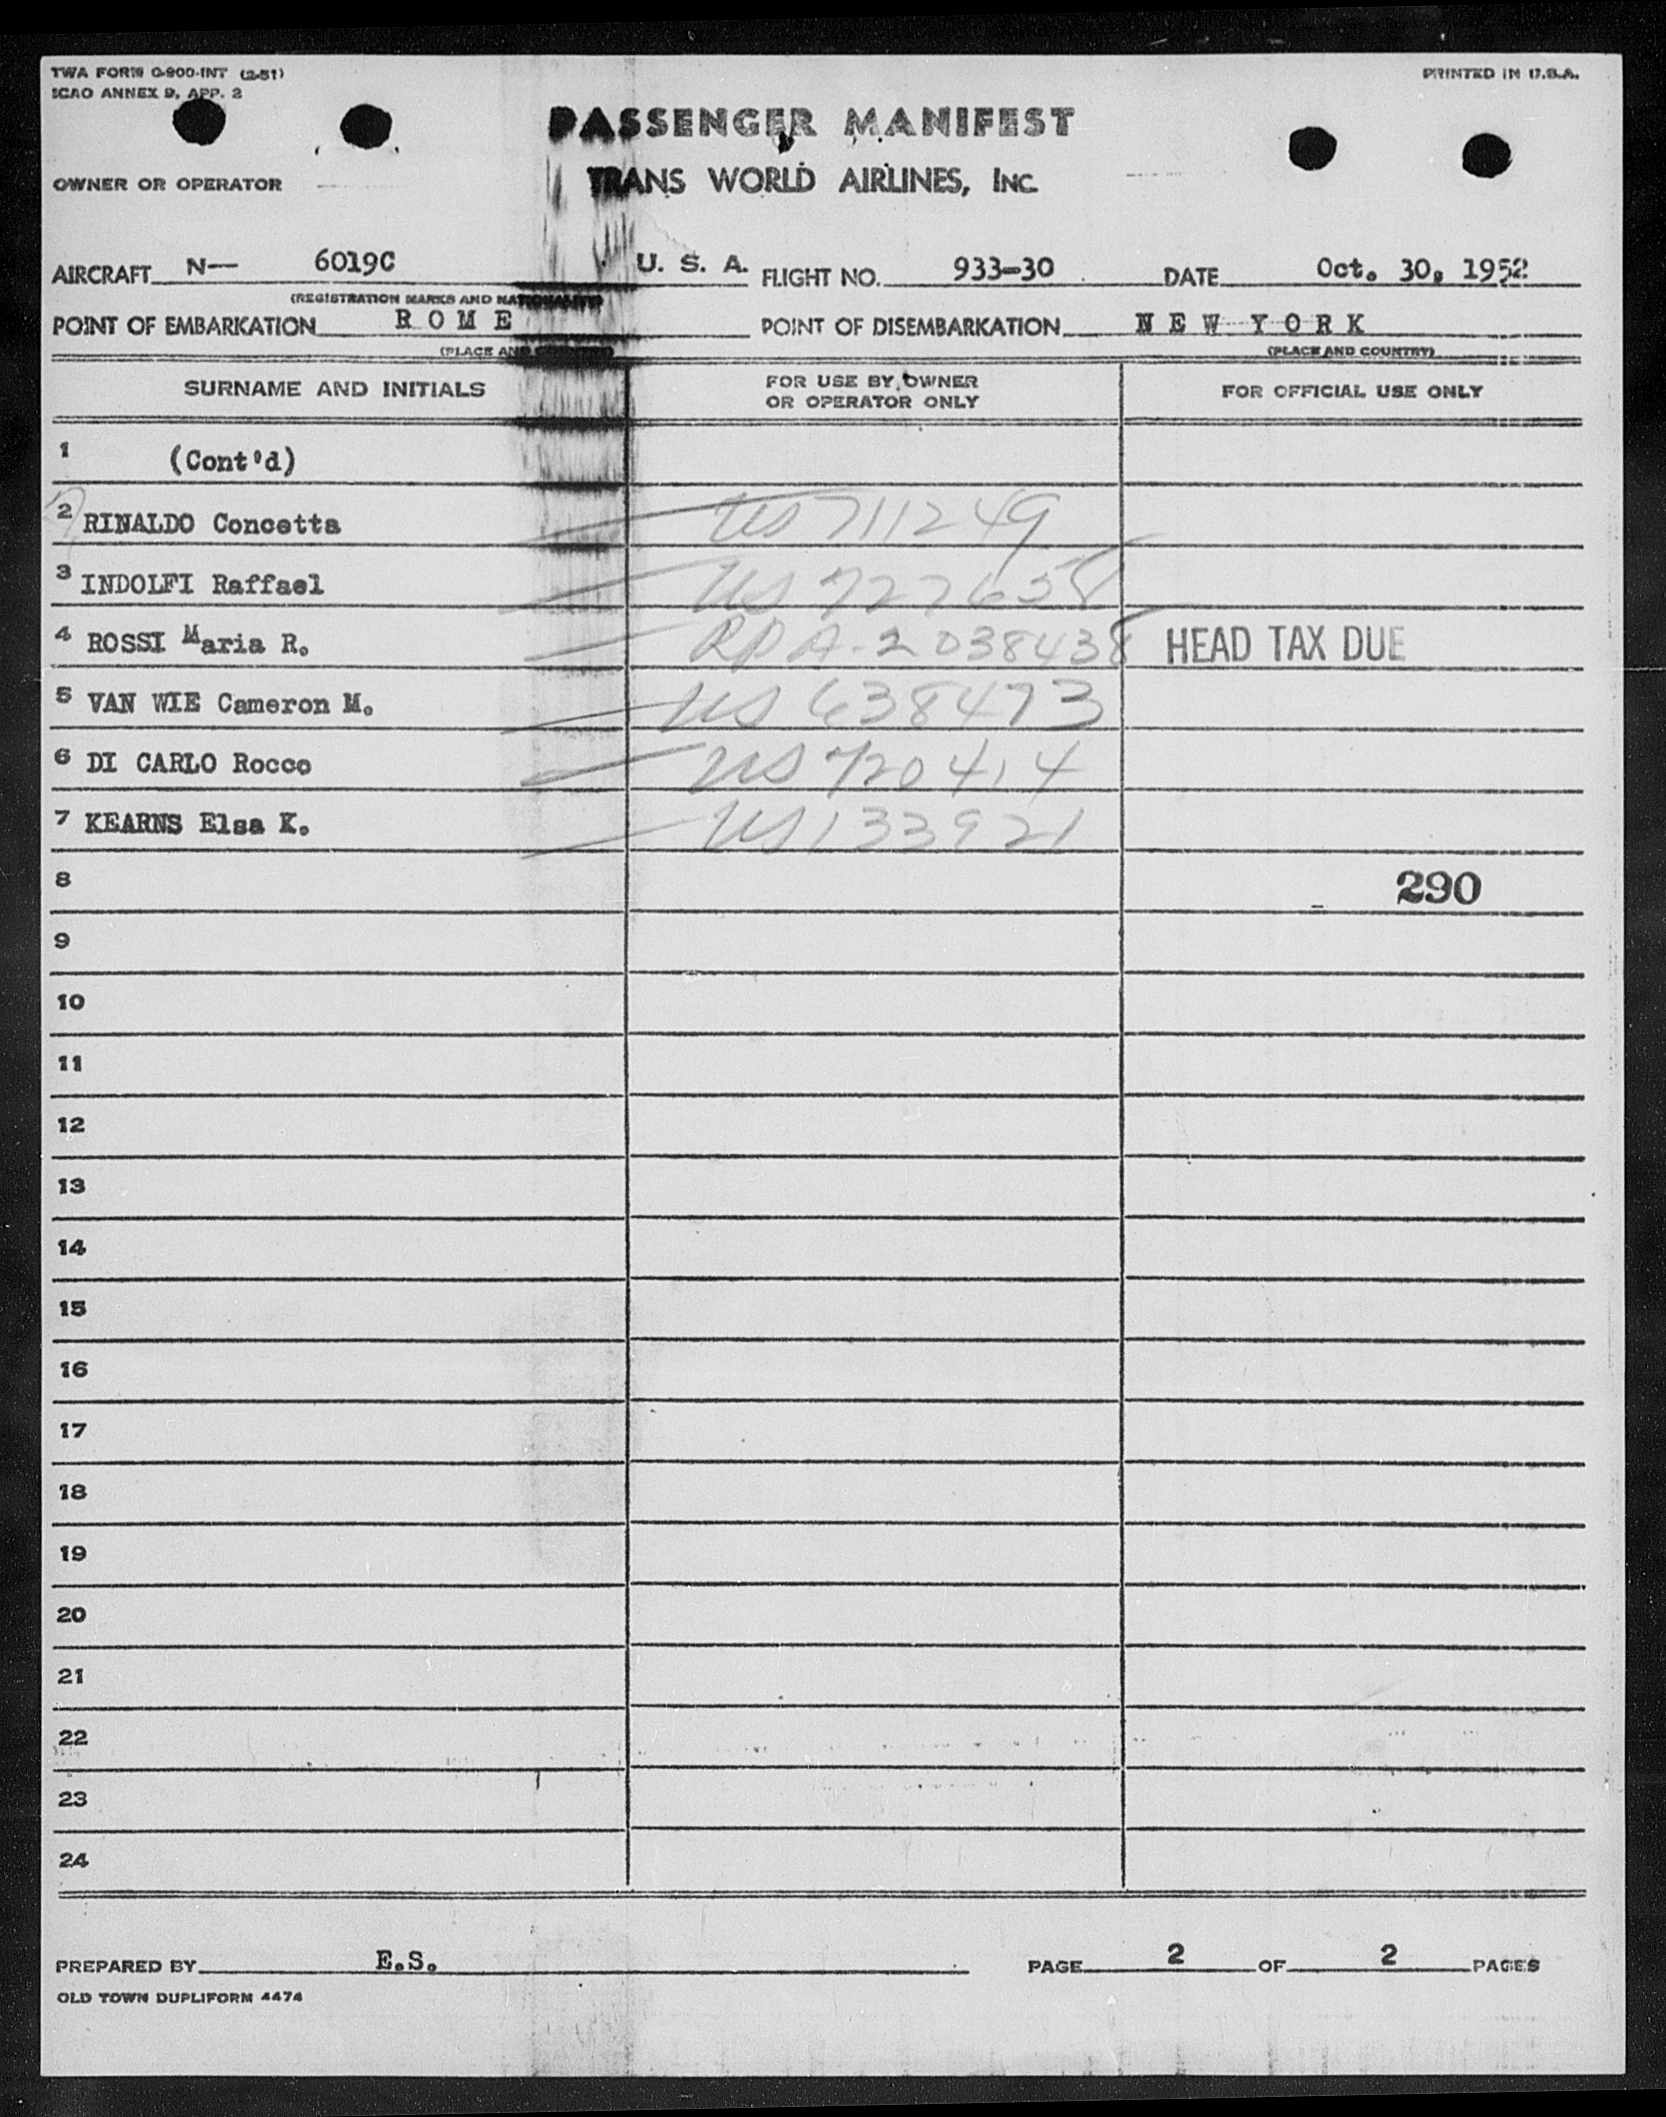 TWA FORM O-900-INT (2-51)
PRINTED IN U.S.A.
ICAO ANNEX 9, APP. 2
PASSENGER MANIFEST
OWNER OR OPERATOR
TRANS WORLD AIRLINES, INC.
AIRCRAFT N— 6019C U. S. A. FLIGHT NO. 933-30 DATE Oct. 30, 1952
(REGISTRATION MARKS AND NATIONALITY)
POINT OF EMBARKATION R O M E POINT OF DISEMBARKATION N E W Y O R K
(PLACE AND COUNTRY) (PLACE AND COUNTRY)
SURNAME AND INITIALS FOR USE BY OWNER OR OPERATOR ONLY FOR OFFICIAL USE ONLY
1 (Cont'd)
2 RINALDO Concetta US 711249
3 INDOLFI Raffael US 727658
4 ROSSI Maria R. RP A-2038438 HEAD TAX DUE
5 VAN WIE Cameron M. US 638473
6 DI CARLO Rocco US 720414
7 KEARNS Elsa K. US 133921
8 290
9
10
11
12
13
14
15
16
17
18
19
20
21
22
23
24
PREPARED BY E.S. PAGE 2 OF 2 PAGES
OLD TOWN DUPLIFORM 4474